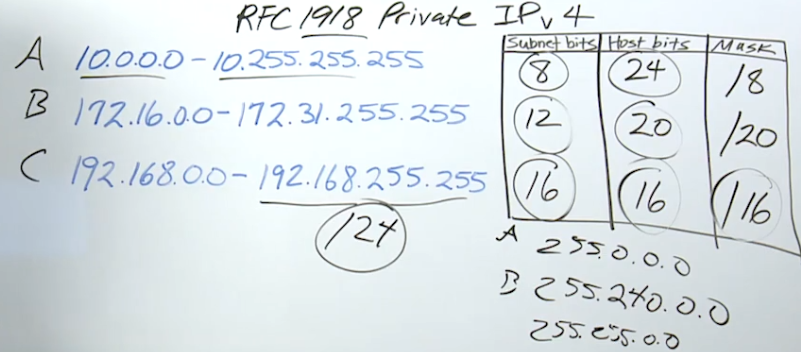 RFC 1918 Private IPv4
A 10.0.0.0 - 10.255.255.255
B 172.16.0.0 - 172.31.255.255
C 192.168.0.0 - 192.168.255.255
/24
Subnet bits Host bits Mask
8 24 /8
12 20 /20
16 16 /16
A 255.0.0.0
B 255.240.0.0
255.255.0.0